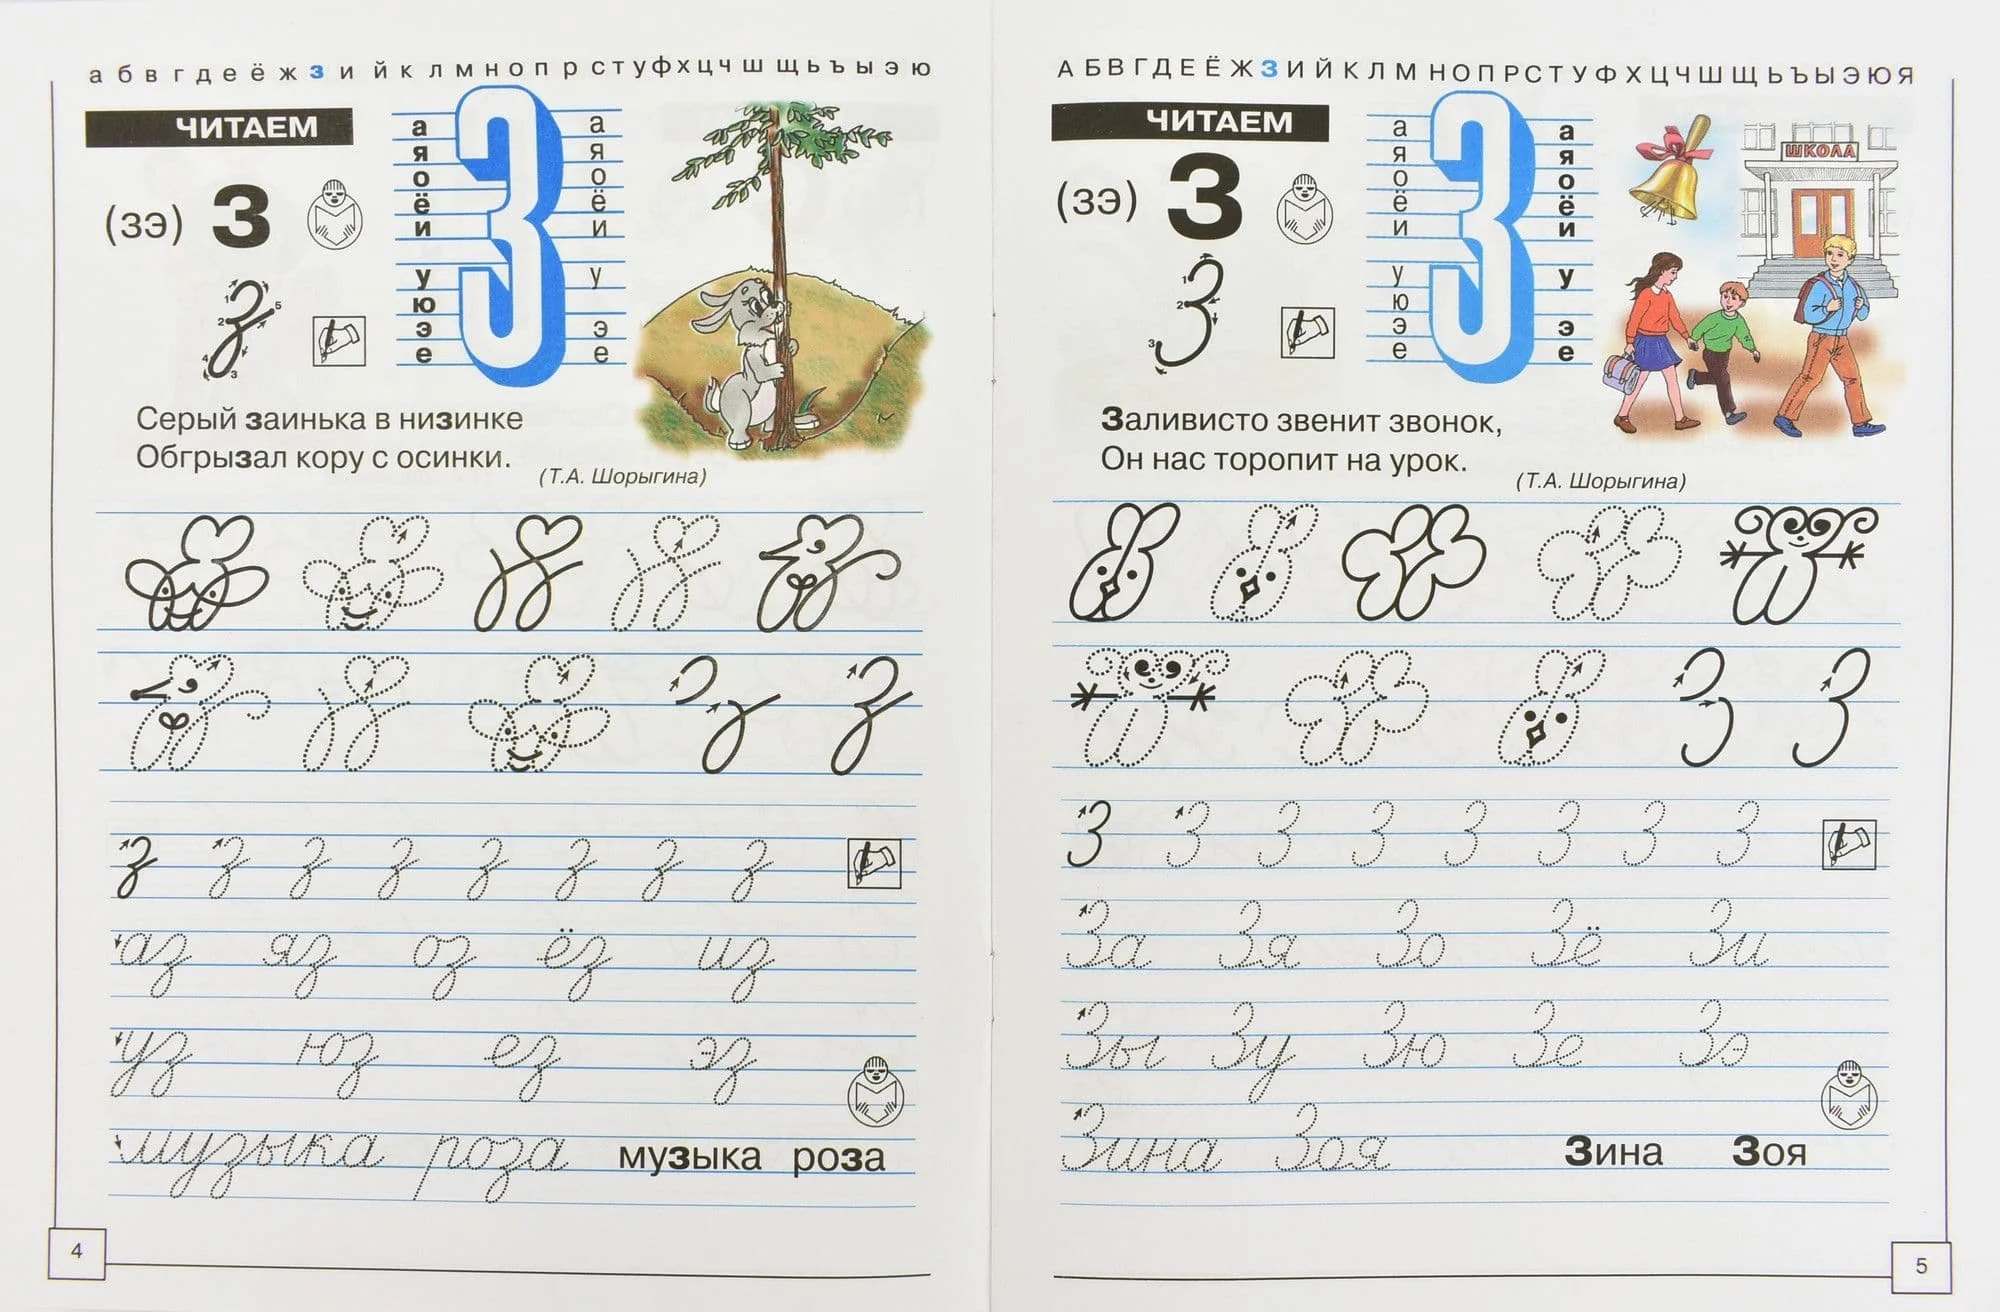 а б в г д е ё ж з и й к л м н о п р с т у ф х ц ч ш щ ь ъ ы э ю
ЧИТАЕМ
(зэ) з
1 2 3 4 5
з
З
а а
я я
о о
ё ё
и и
у у
ю
э э
е е
Серый заинька в низинке
Обгрызал кору с осинки.
(Т.А. Шорыгина)
з
з з з з з з з з
аз яз оз ёз из
уз юз ез эз
музыка роза музыка роза
4
А Б В Г Д Е Ё Ж З И Й К Л М Н О П Р С Т У Ф Х Ц Ч Ш Щ Ь Ъ Ы Э Ю Я
ЧИТАЕМ
(зэ) З
1 2 3
З
З
а а
я я
о о
ё ё
и и
у у
ю
э э
е е
ШКОЛА
Заливисто звенит звонок,
Он нас торопит на урок.
(Т.А. Шорыгина)
З З
З З З З З З З З
За Зя Зо Зё Зи
Зы Зу Зю Зе Зэ
Зина Зоя Зина Зоя
5